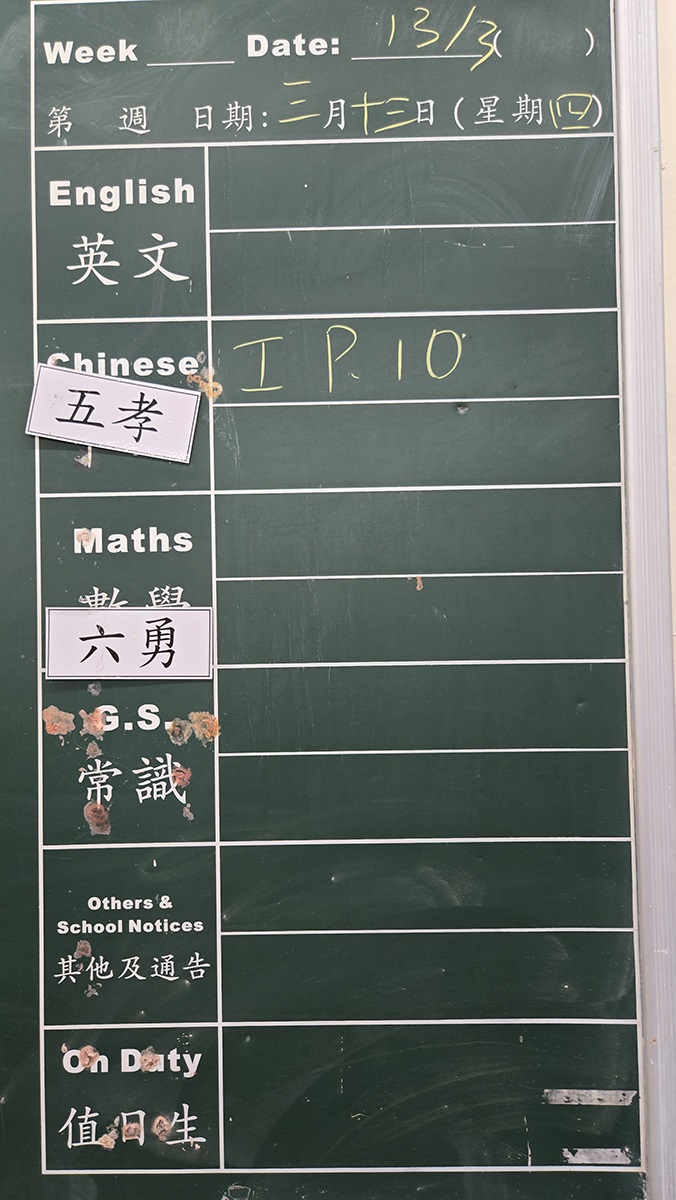 Week _____ Date: 13/3 ( )
第 週 日期: 三月十三日 (星期四)
English
英文
Chinese I P.10
五孝
Maths
數學
六勇
G.S.
常識
Others &
School Notices
其他及通告
On Duty
值日生